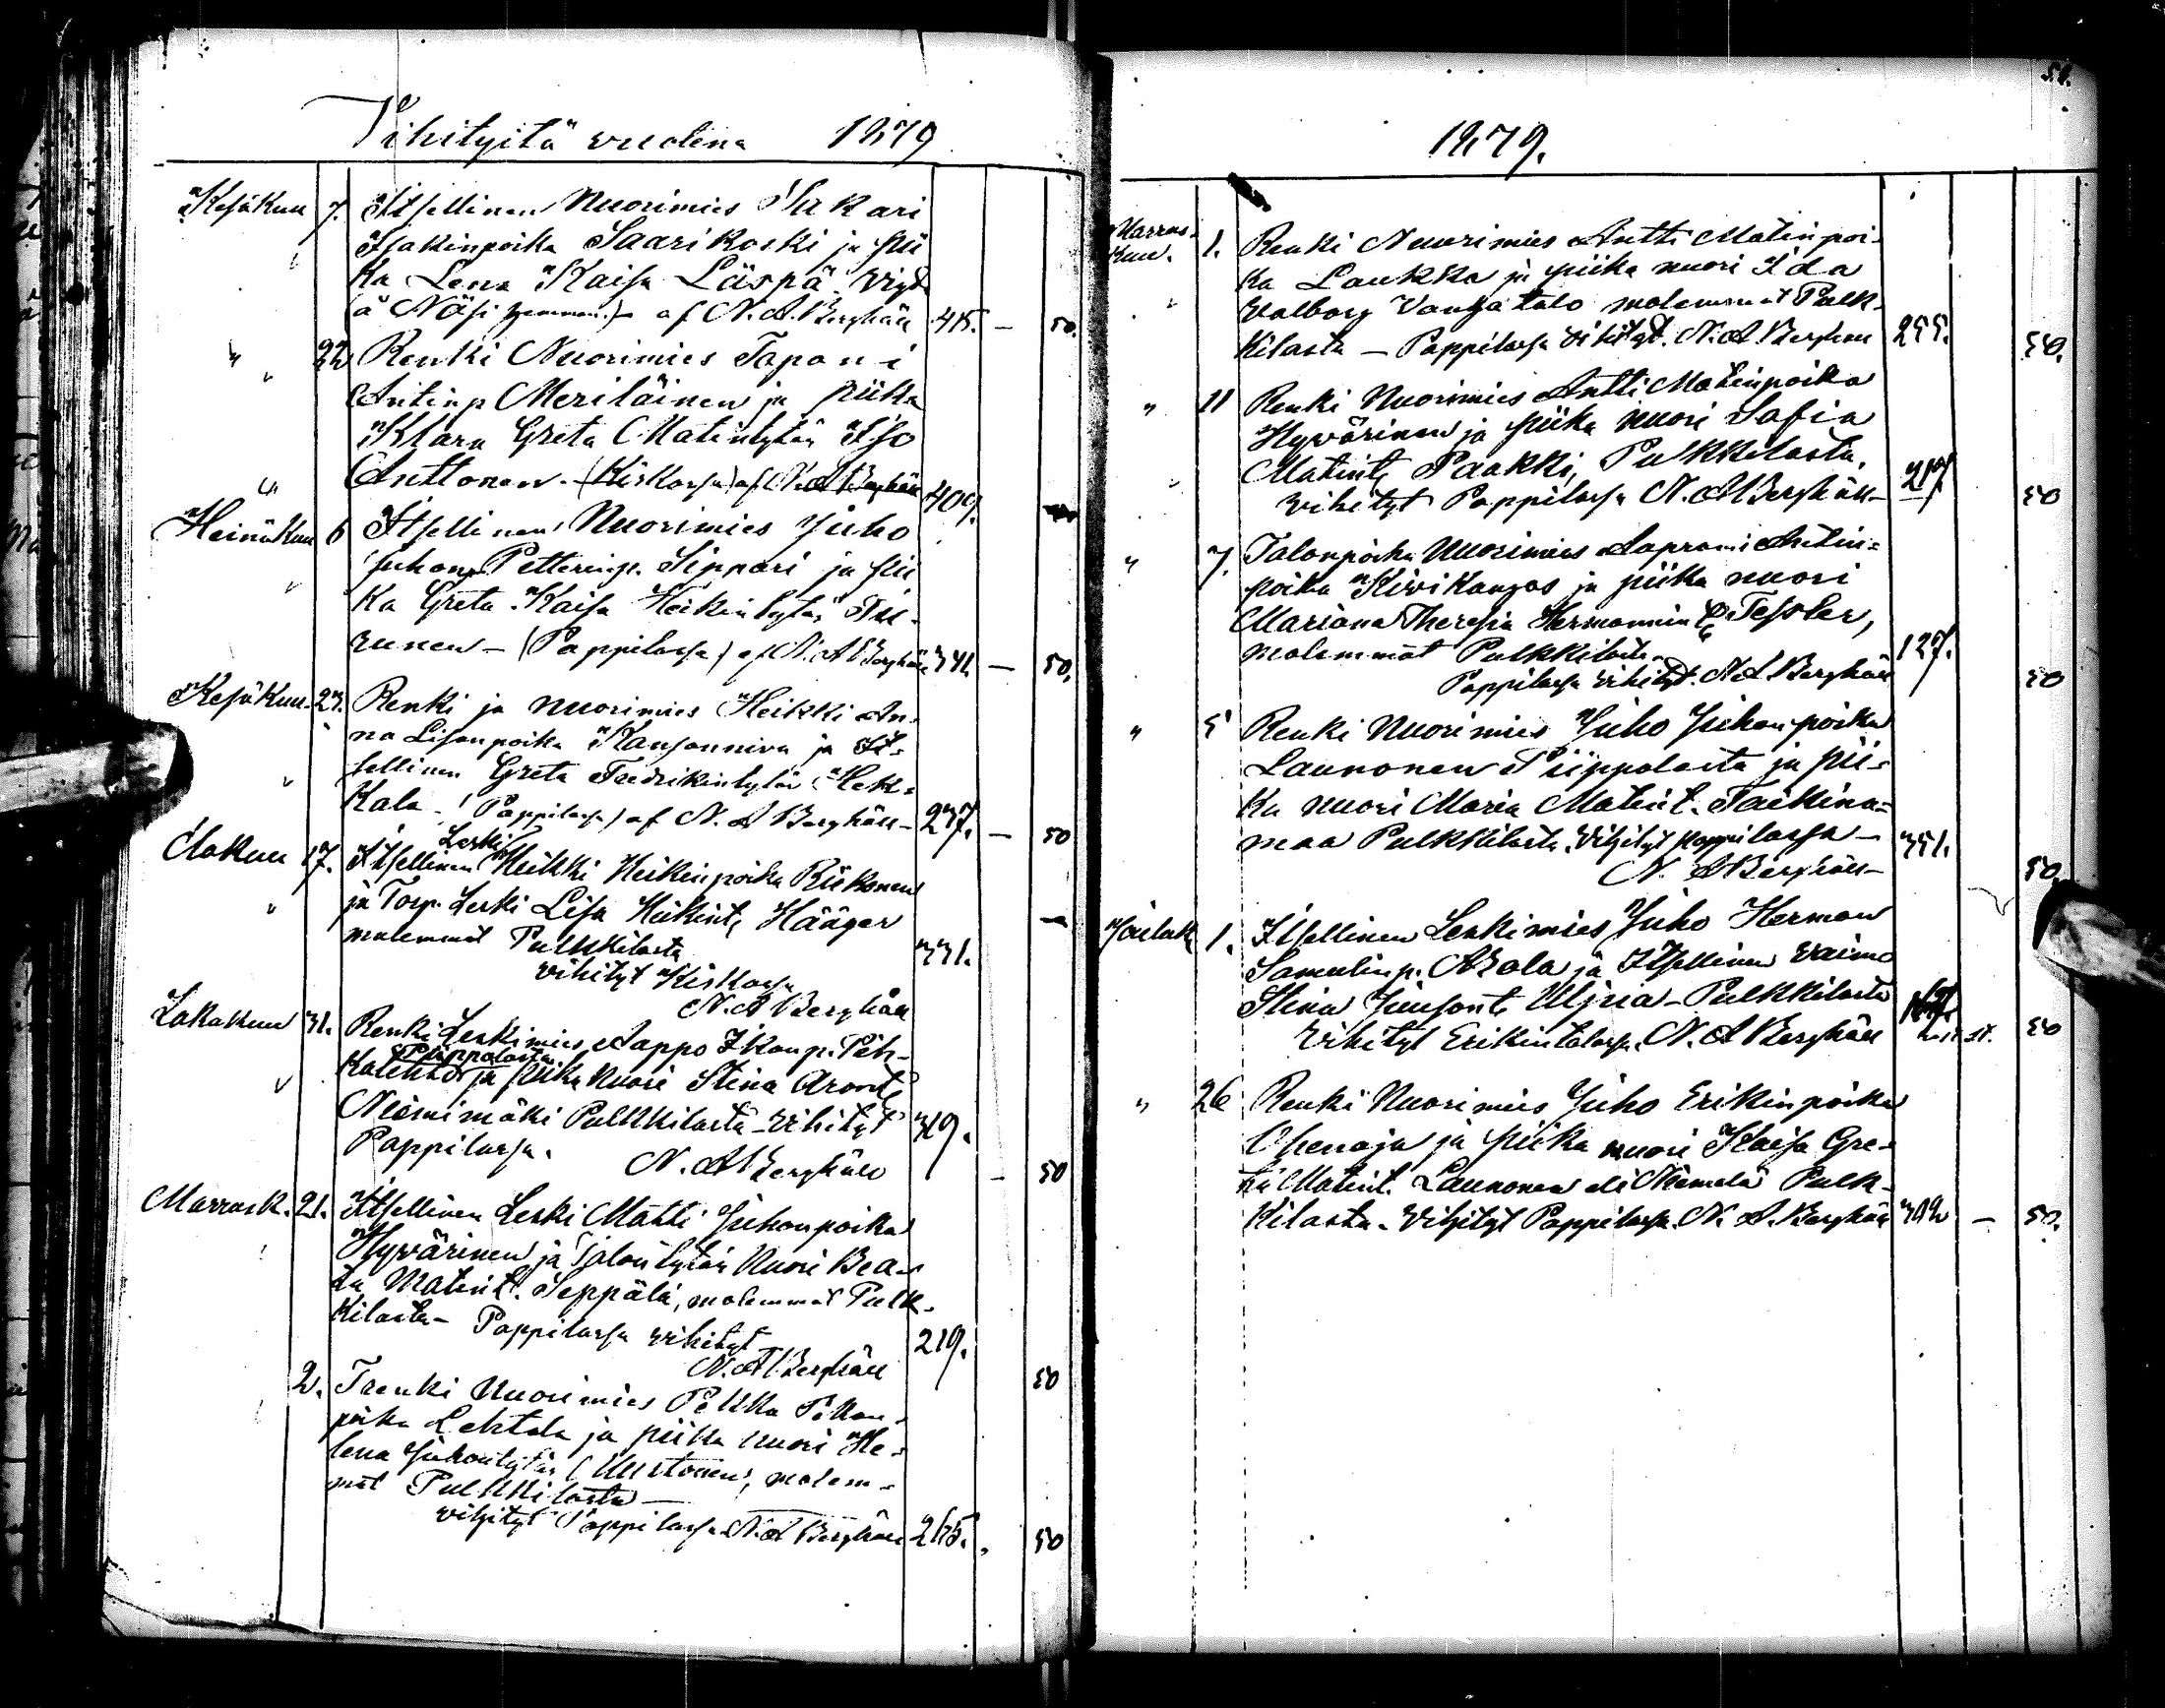 Vihityitä vuotena 1879
Kesäkuu 7. Itsellinen Nuorimies Sakari
Isakinpoika Saarikoski ja pii
ka Lena Kaisa Läspä. vigda
(ä Näsi hemman.) af N. A. Berghäll 415. — 50.
" 22 Renki Nuorimies Tapani
Antinp Meriläinen ja piika
Klara Greta Matintytär Iso
Anttonen. (Kirkossa) af N. A Berghäll 409.
Heinäkuu 6 Itsellinen Nuorimies Juho
Juhonp Petterinp. Sippari ja pii
ka Greta Kaisa Heikintytär Tii-
runen — (Pappilassa) af N. A Berghäll 341. — 50.
Kesäkuu 23. Renki ja nuorimies Heikki An-
na Lisanpoika Kansanniva ja It-
sellinen Greta Fredrikintytär Hek-
kala — (Pappilassa) af N. A Berghäll — 237. — 50
Elokuu 17. Itsellinen Leski Heikki Heikinpoika Riikonen
ja Torp. Leski Lisa Heikint. Hääger
molemmat Pulkkilasta 331. —
vihityt Kirkossa
N. A Berghäll
Lokakuu 31. Renki Leskimies Aappo Ikonp. Pih-
Piippolasta
kalehto ja piika Nuori Stina Aront.
Niemimäki Pulkkilasta — vihityt 319.
Pappilassa.
N. A Berghäll — 50
Marrask. 21. Itsellinen Leski Matti Juhonpoika
Hyvärinen ja Talon tytär Nuori Bea-
ta Matint. Seppälä, molemmat Pulk-
kilasta — Pappilassa vihityt 219.
N. A Berghäll 50
2. Trenki Nuorimies Pekka Pekan-
poika Lehtola ja piika nuori He-
lena Juhontytär Uustonen, molem-
mat Pulkkilasta —
vihityt Pappilassa N. A Berghäll 265. 50
51.
1879.
Marras-
kuu. 1. Renki Nuorimies Antti Matinpoi-
ka Laukka ja piika nuori Ida
Valborg Vanhatalo molemmat Pulk-
kilasta — Pappilassa vihityt. N. A Berghäll 255. 50.
" 11 Renki Nuorimies Antti Matinpoika
Hyvärinen ja piika nuori Sofia
Matint. Paakki, Pulkkilasta,
vihityt Pappilassa N. A Berghäll — 217 50
" 7. Talonpoika Nuorimies Aaprami Antin-
poika Kivikangas ja piika nuori
Mariana Theresia Hermannin t. Tessler,
molemmat Pulkkilasta 127.
Pappilassa vihityt. N. A. Berghäll 50
" 5 Renki Nuorimies Juho Juhonpoika
Launonen Piippolasta ja pii-
ka nuori Maria Matint. Taikina-
maa Pulkkilasta. Vihityt pappilassa — 351.
N. A Berghäll — 50.
Jouluk. 1. Itsellinen Leskimies Juho Herman
Samulinp. Ahola ja Itsellinen vaimo
Stina Juusont. Uljua — Pulkkilasta
Vihityt Erikintalossa. N. A Berghäll 50
" 26 Renki Nuorimies Juho Erikinpoika
Ohenoja ja piika nuori Kaisa Gre-
ta Matint. Launonen eli Niemelä Pulk-
kilasta. Vihityt Pappilassa. N. A. Berghäll 342 — 50.